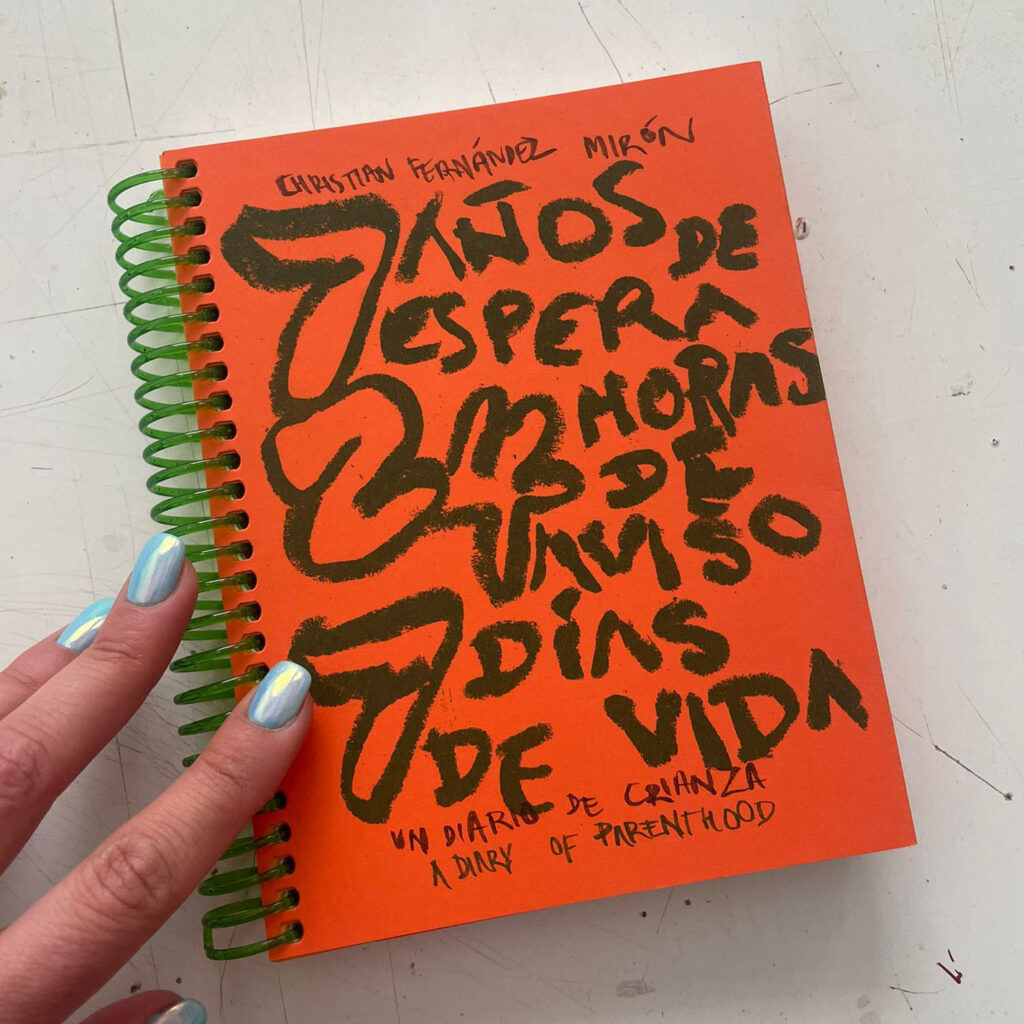 CHRISTIAN FERNÁNDEZ MIRÓN
7 AÑOS DE
ESPERA
2 HORAS
DE
AVISO
7 DÍAS
DE VIDA
UN DIARIO DE CRIANZA
A DIARY OF PARENTHOOD